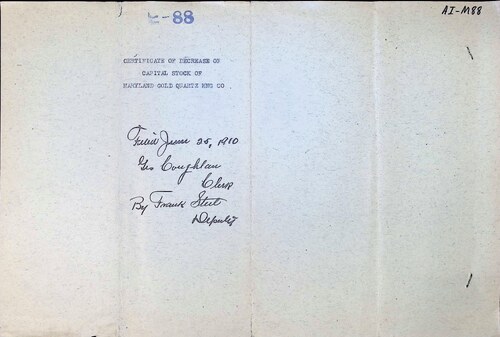 -88
AI-M88
CERTIFICATE OF DECREASE OF
CAPITAL STOCK OF
MARYLAND GOLD QUARTZ MNG CO
Filed June 25, 1910
Geo Coughlan
Clerk
By Frank Steel
Deputy